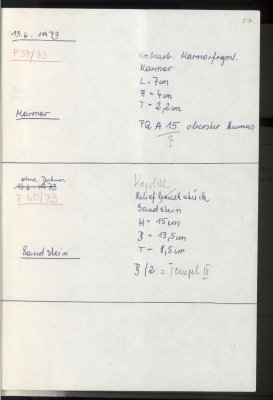 57
13.6.1973
P 59/73
Unbearb. Marmorfragm.
Marmor
L = 7cm
B = 4cm
T = 2,2cm
Marmor
PQ A 15 oberster Humus
?
ohne Datum
13.6.1973
P 60/73
Kapitell
Reliefbruchstück
Sandstein
H = 15cm
B = 13,5cm
T = 8,5cm
Sandstein
B/2 = Tempel II